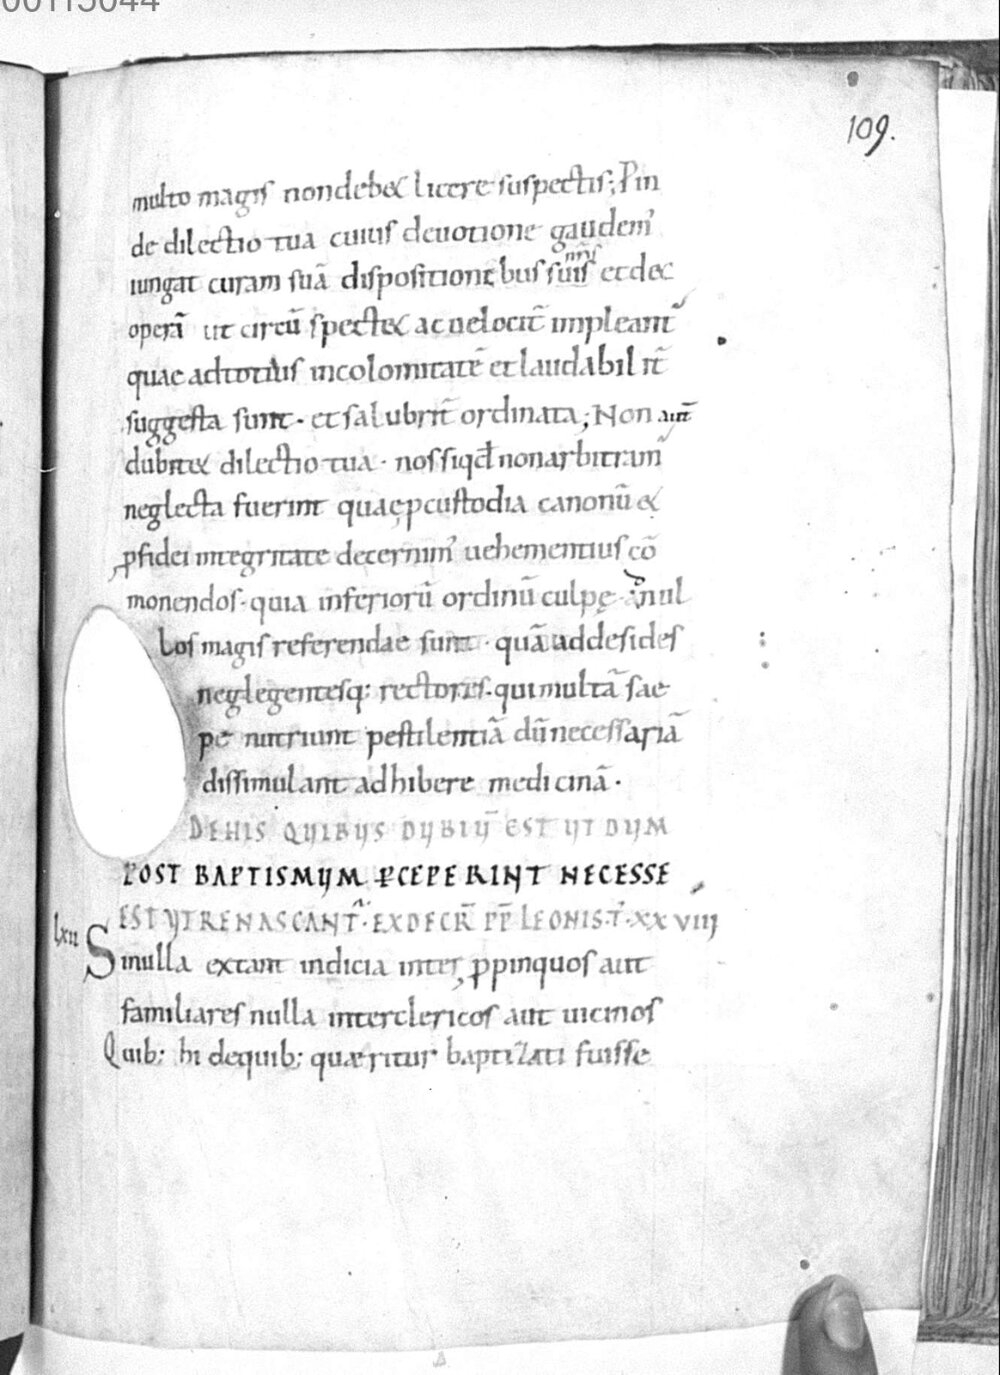 00115044
109.
multo magis non debet licere suspectis; Proin
de dilectio tua cuius deuotione gaudem᾽
iungat curam suā dispositionibus suis nr̄is et det
operā ut circūspectet ac uelocit̄ impleant᾽
quae ad totius incolomitatē et laudabilit̄
suggesta sunt · et salubrit̄ ordinata; Non aut̄
dubitet dilectio tua · nos siqđ non arbitram᾽
neglecta fuerint quae ꝓ custodia canonū et
ꝓ fidei integritate decernim᾽ uehementius cō
monendos · quia inferiorū ordinū culpę ad nul
los magis referendae sunt · quā ad desides
neglegentesq; rectores · qui multā sae
pe nutriunt pestilentiā dū necessariā
dissimulant adhibere medicinā ·
DE HIS QUIBUS DUBIŪ EST UT DUM
POST BAPTISMUM PCEPERINT NECESSE
EST UT RENASCANT᾽ · EX DECR̄ PP̄ LEONIS · T᾽ · XXVIII
lxii Si nulla extant indicia inter ꝓpinquos aut
familiares nulla inter clericos aut uicinos
Quib; hi de quib; quæritur baptizati fuisse